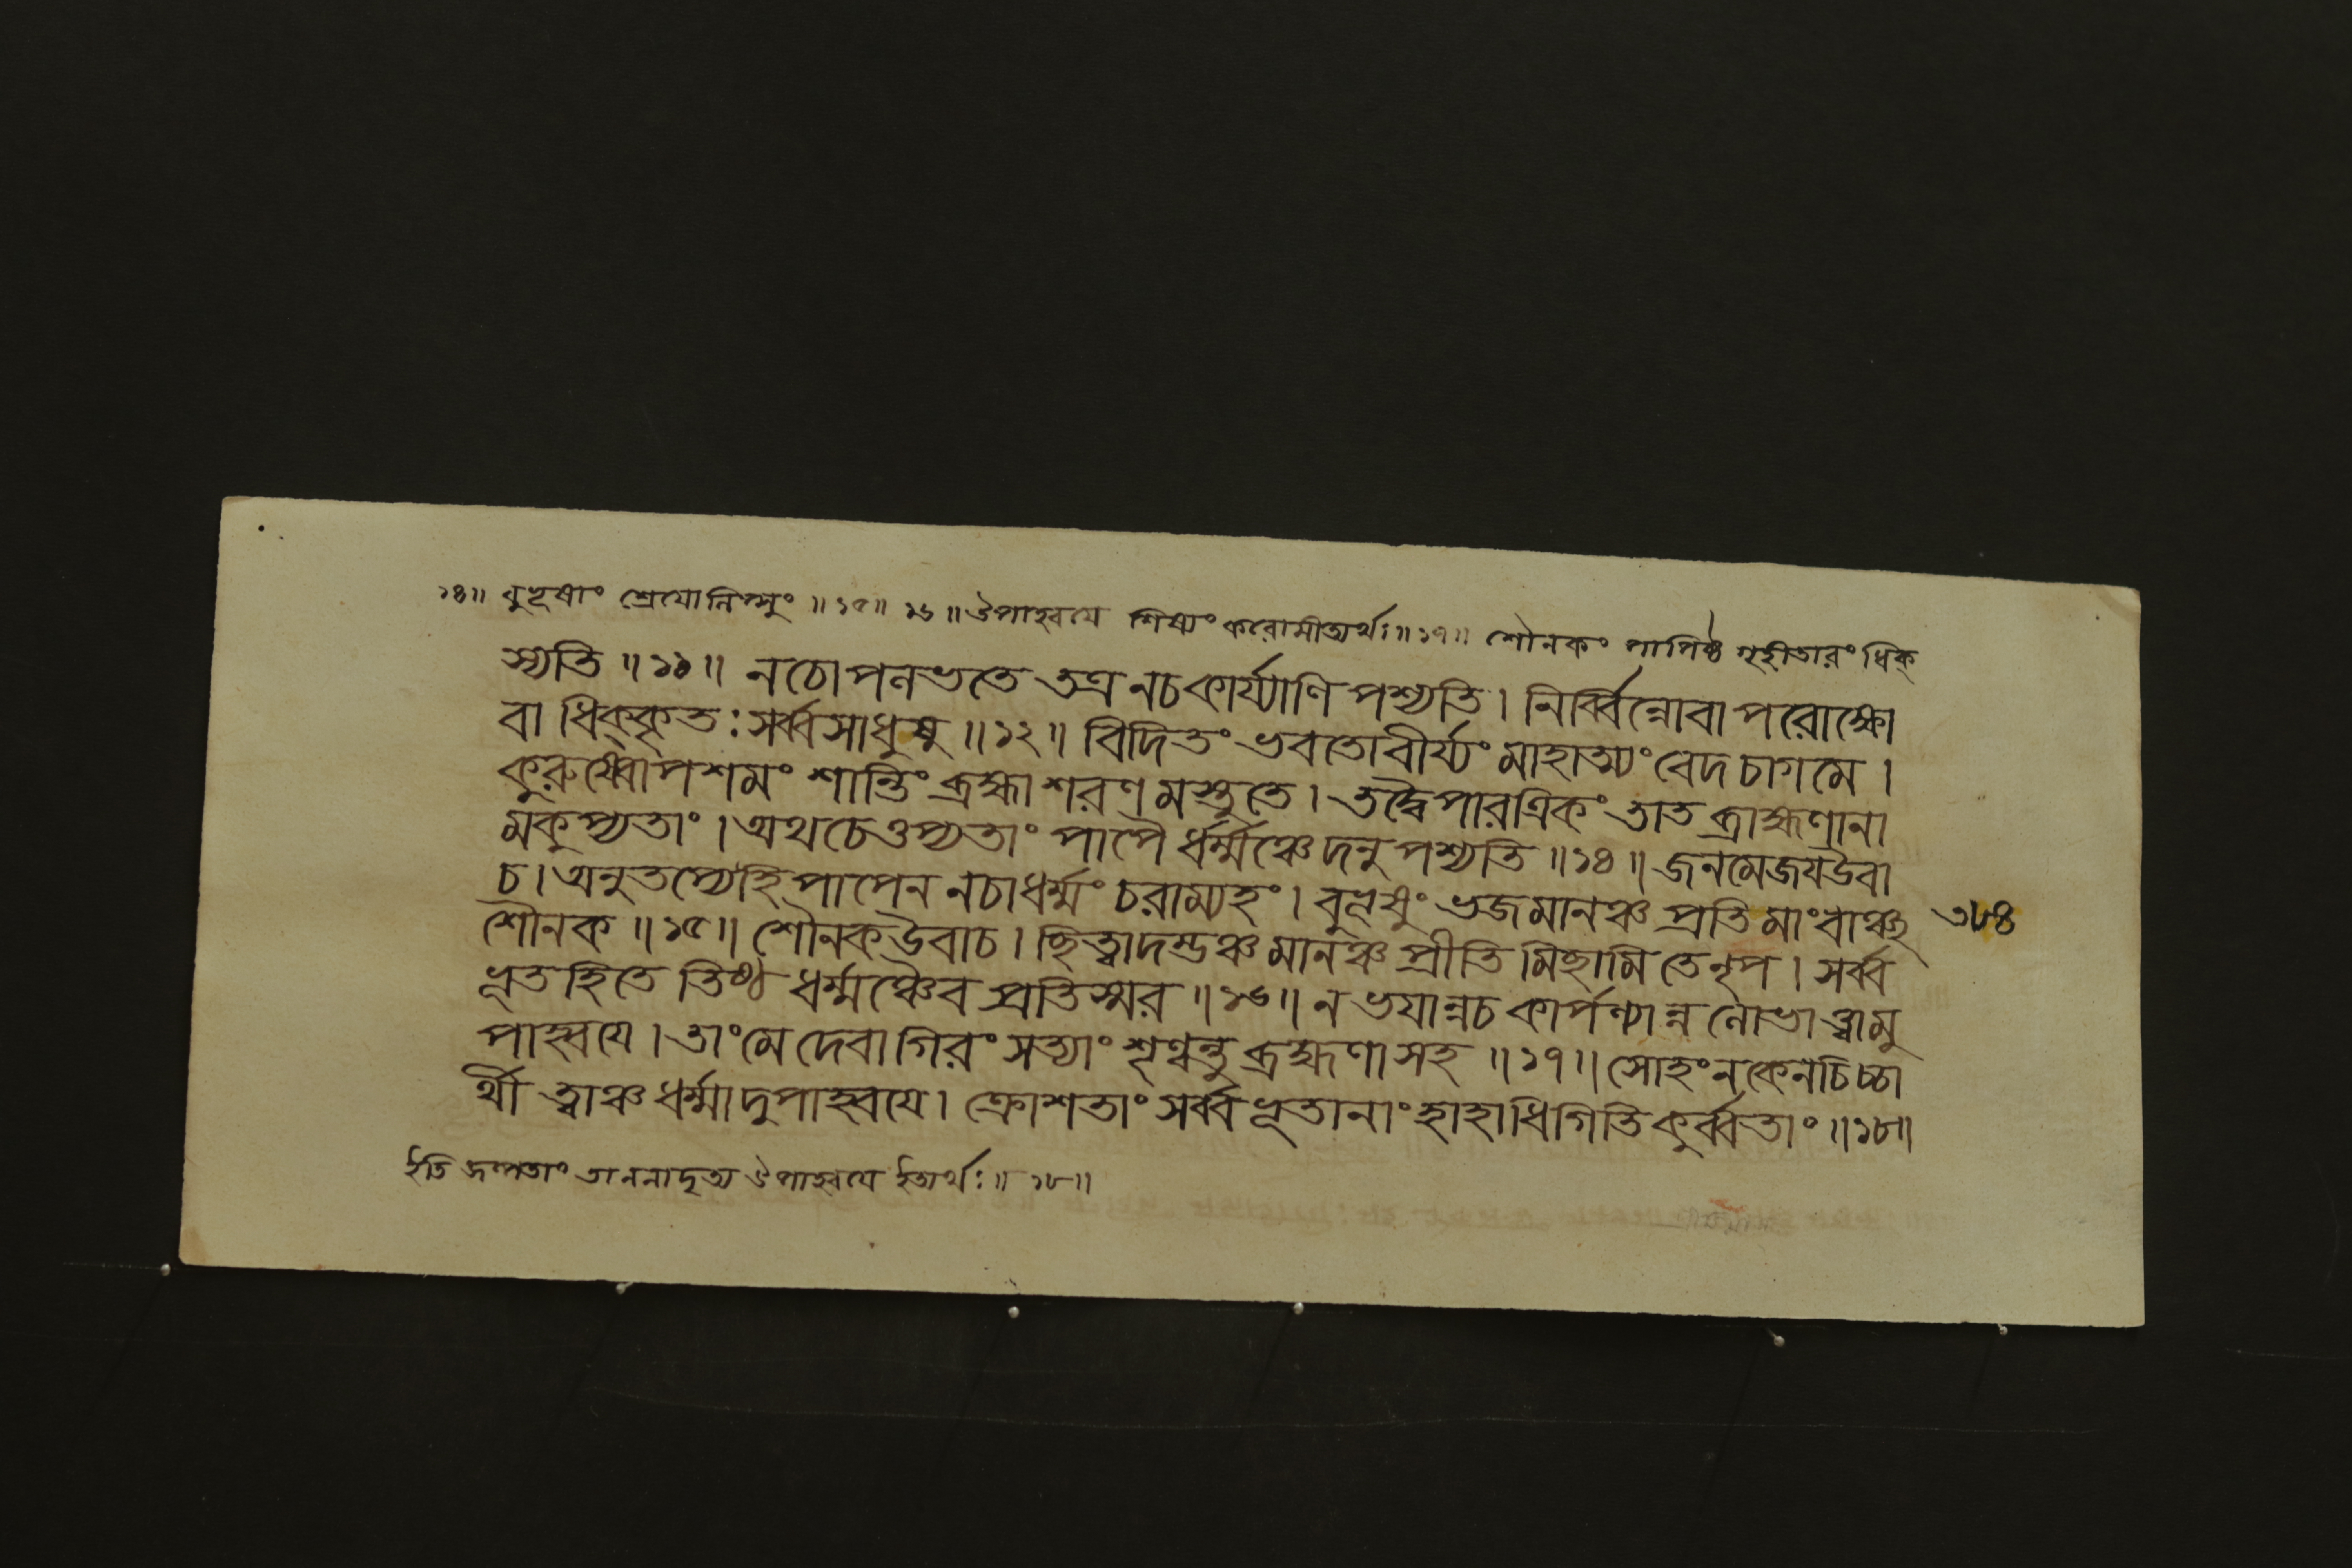 ১৪॥ বুভূষাং শ্রেযোনিপ্সুং ॥১৫॥ ১৬॥ উপাহ্বযে শিষ্যং করোমীত্যর্থঃ॥১৭॥ শৌনকং পাপিষ্ঠ গৃহীতারং ধিক্
স্যতি ॥১১॥ নচোপলভতে তত্র নচকার্য্যাণি পশ্যতি। নির্ব্বিন্নোবা পরোক্ষো
বা ধিক্কৃতঃ সর্ব্বসাধুষু ॥১২॥ বিদিতং ভবতোবীর্য্যং মাহাত্ম্যং বেদ চাগমে।
কুরুষ্বোপশমং শান্তিং ব্রহ্মা শরণমস্তুতে। তদ্বৈপারত্রিকং তাত ব্রাহ্মণানা
মকুপ্যতাং। অথচেত্তপ্যতাং পাপৈ র্ধর্ম্মঞ্চেদনুপশ্যতি ॥১৪॥ জনমেজযউবা
চ। অনুতপ্যেহিপাপেন নচাধর্ম্মং চরাম্যহং। বুভূষুং ভজমানঞ্চ প্রতি মাংবাঞ্ছ
শৌনক ॥১৫॥ শৌনকউবাচ। ছিত্ত্বাদম্ভঞ্চ মানঞ্চ প্রীতি মিছামি তেনৃপ। সর্ব্ব
ভূতহিতে তিষ্ঠ ধর্ম্মঞ্চৈব প্রতিস্মর ॥১৬॥ ন ভযান্নচ কার্পণ্যান্ন লোভাত্ত্বামু
পাহ্বযে। তাংমে দেবাগিরং সত্যাং শৃণ্বন্তু ব্রাহ্মণাসহ ॥১৭॥ সোহংনকেনচিচ্চা
র্থী ত্বাঞ্চ ধর্ম্মাদুপাহ্বযে। ক্রোশতাং সর্ব্বভূতানাং হাহাধিগিতি কুর্ব্বতাং॥১৮॥
৩৮৪
ইতি জল্পতাং তাননাদৃত্য উপাহ্বযে ইত্যর্থঃ॥ ১৮॥